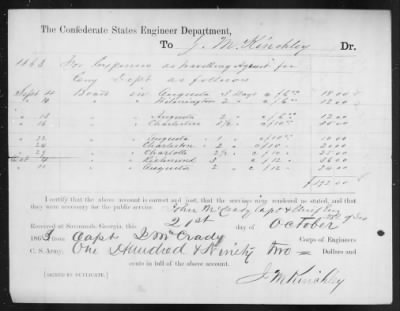 The Confederate States Engineer Department,
To J. M. Kinchley Dr.
1863 For Expenses as travelling Agent for
Eng Dept as follows
Sept 4 Board in Augusta 3 Days @ 6.00 18.00
" 10 " " Wilmington 2 " @ 6.00 12.00
" 13 " " Augusta 2 " @ 6.00 12.00
" 16 " " Charleston " @ 10.00
" 22 " " Augusta 1 " @ 10.00 10.00
" 24 " " Charleston 2 " 20.00
" 29 " " Charlotte @ 12
Oct " " Richmond 3 " @ 12 36.00
" 11 " " Augusta 2 " @ 12 24.00
$192.00
I certify that the above account is correct and just, that the services were rendered as stated, and that
they were necessary for the public service. John McCrady Capt & Chief Eng
Received at Savannah, Georgia, this 21st day of October
1863, from Capt J McCrady Corps of Engineers
C. S. Army, One Hundred & Ninety two Dollars and
cents in full of the above account.
[SIGNED IN DUPLICATE.] J. M Kinchley